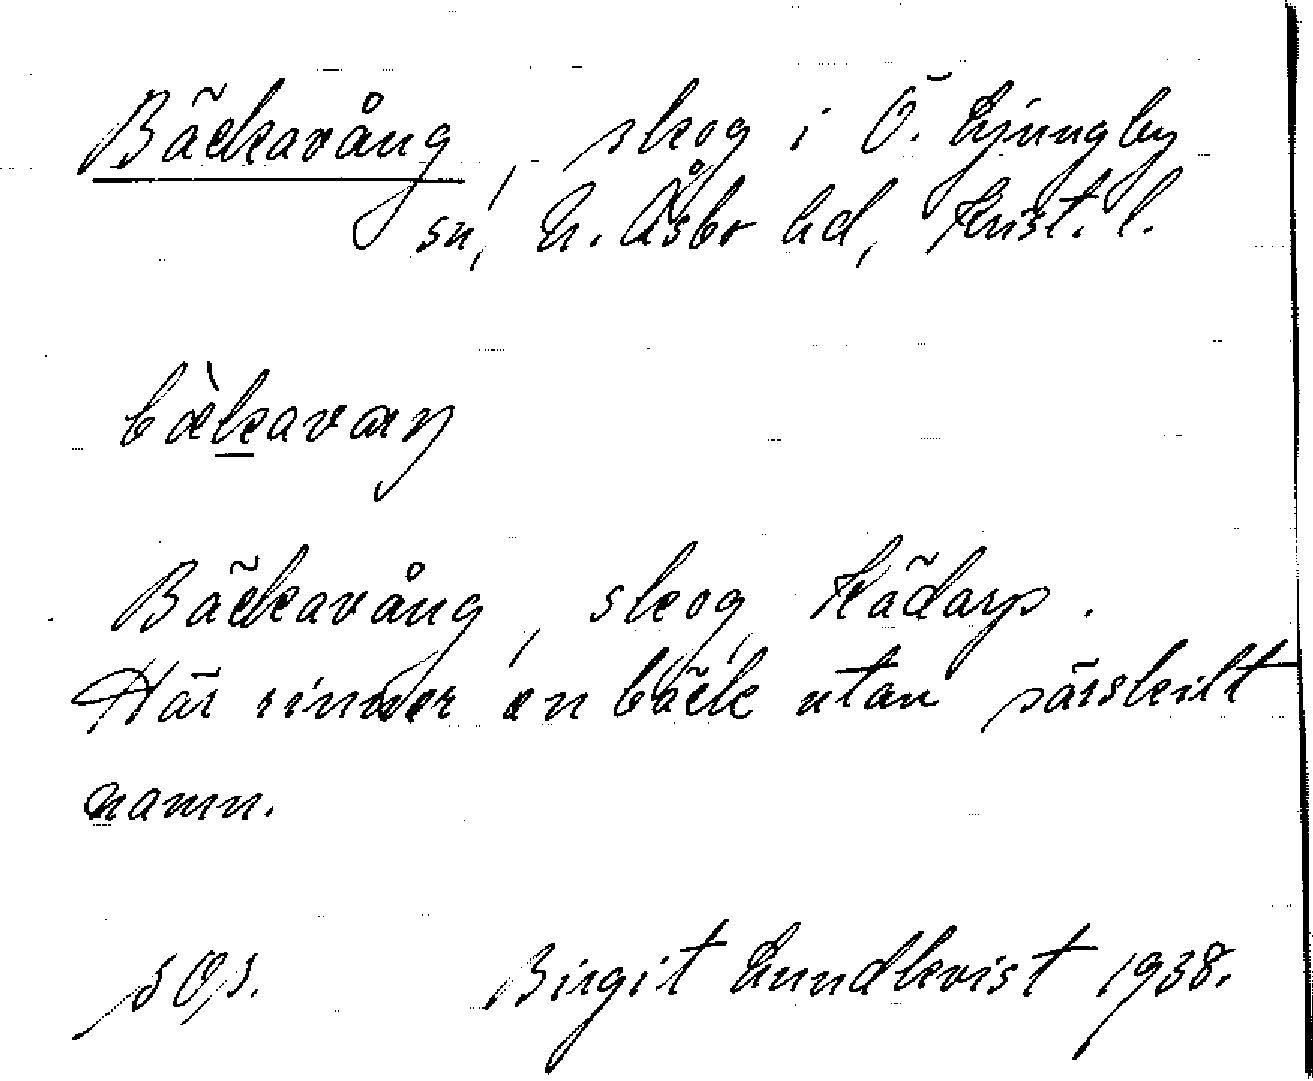 Bäckavång, skog i Ö. Ljungby
sn, N. Åsbo hd, Krist. l.
bæ̀kavaŋ
Bäckavång, skog, Kädarp.
Här rinner en bäck utan särskilt
namn.
Birgit Lundkvist 1938.